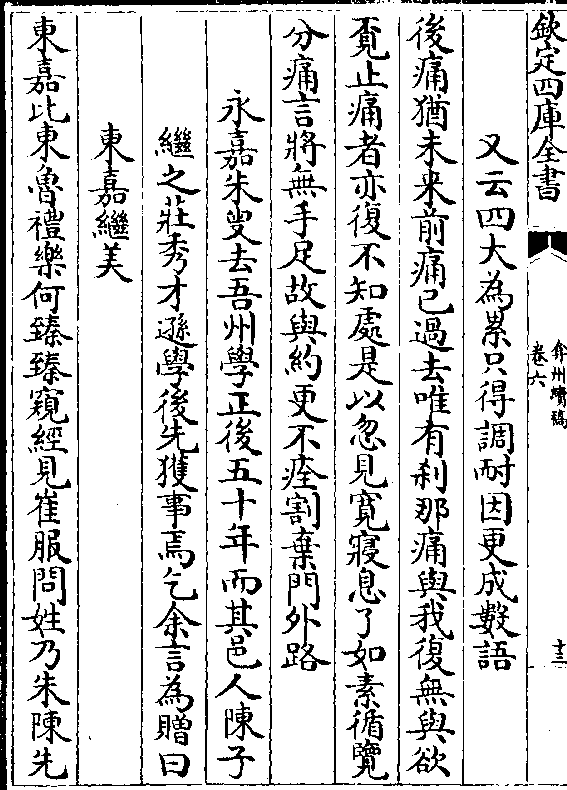 欽定四庫全書
弇州續稿
卷六
十三
又云四大為累只得調耐因更成數語
後痛猶未来前痛已過去唯有刹那痛與我復無與欲
覔止痛者亦復不知處是以忽見寛寢息了如素循覽
分痛言將無手足故與約更不痊割棄門外路
永嘉朱叟去吾州學正後五十年而其邑人陳子
繼之莊秀才遜學後先獲事焉乞余言為贈曰
東嘉繼美
東嘉比東魯禮樂何臻臻窺經見崔服問姓乃朱陳先